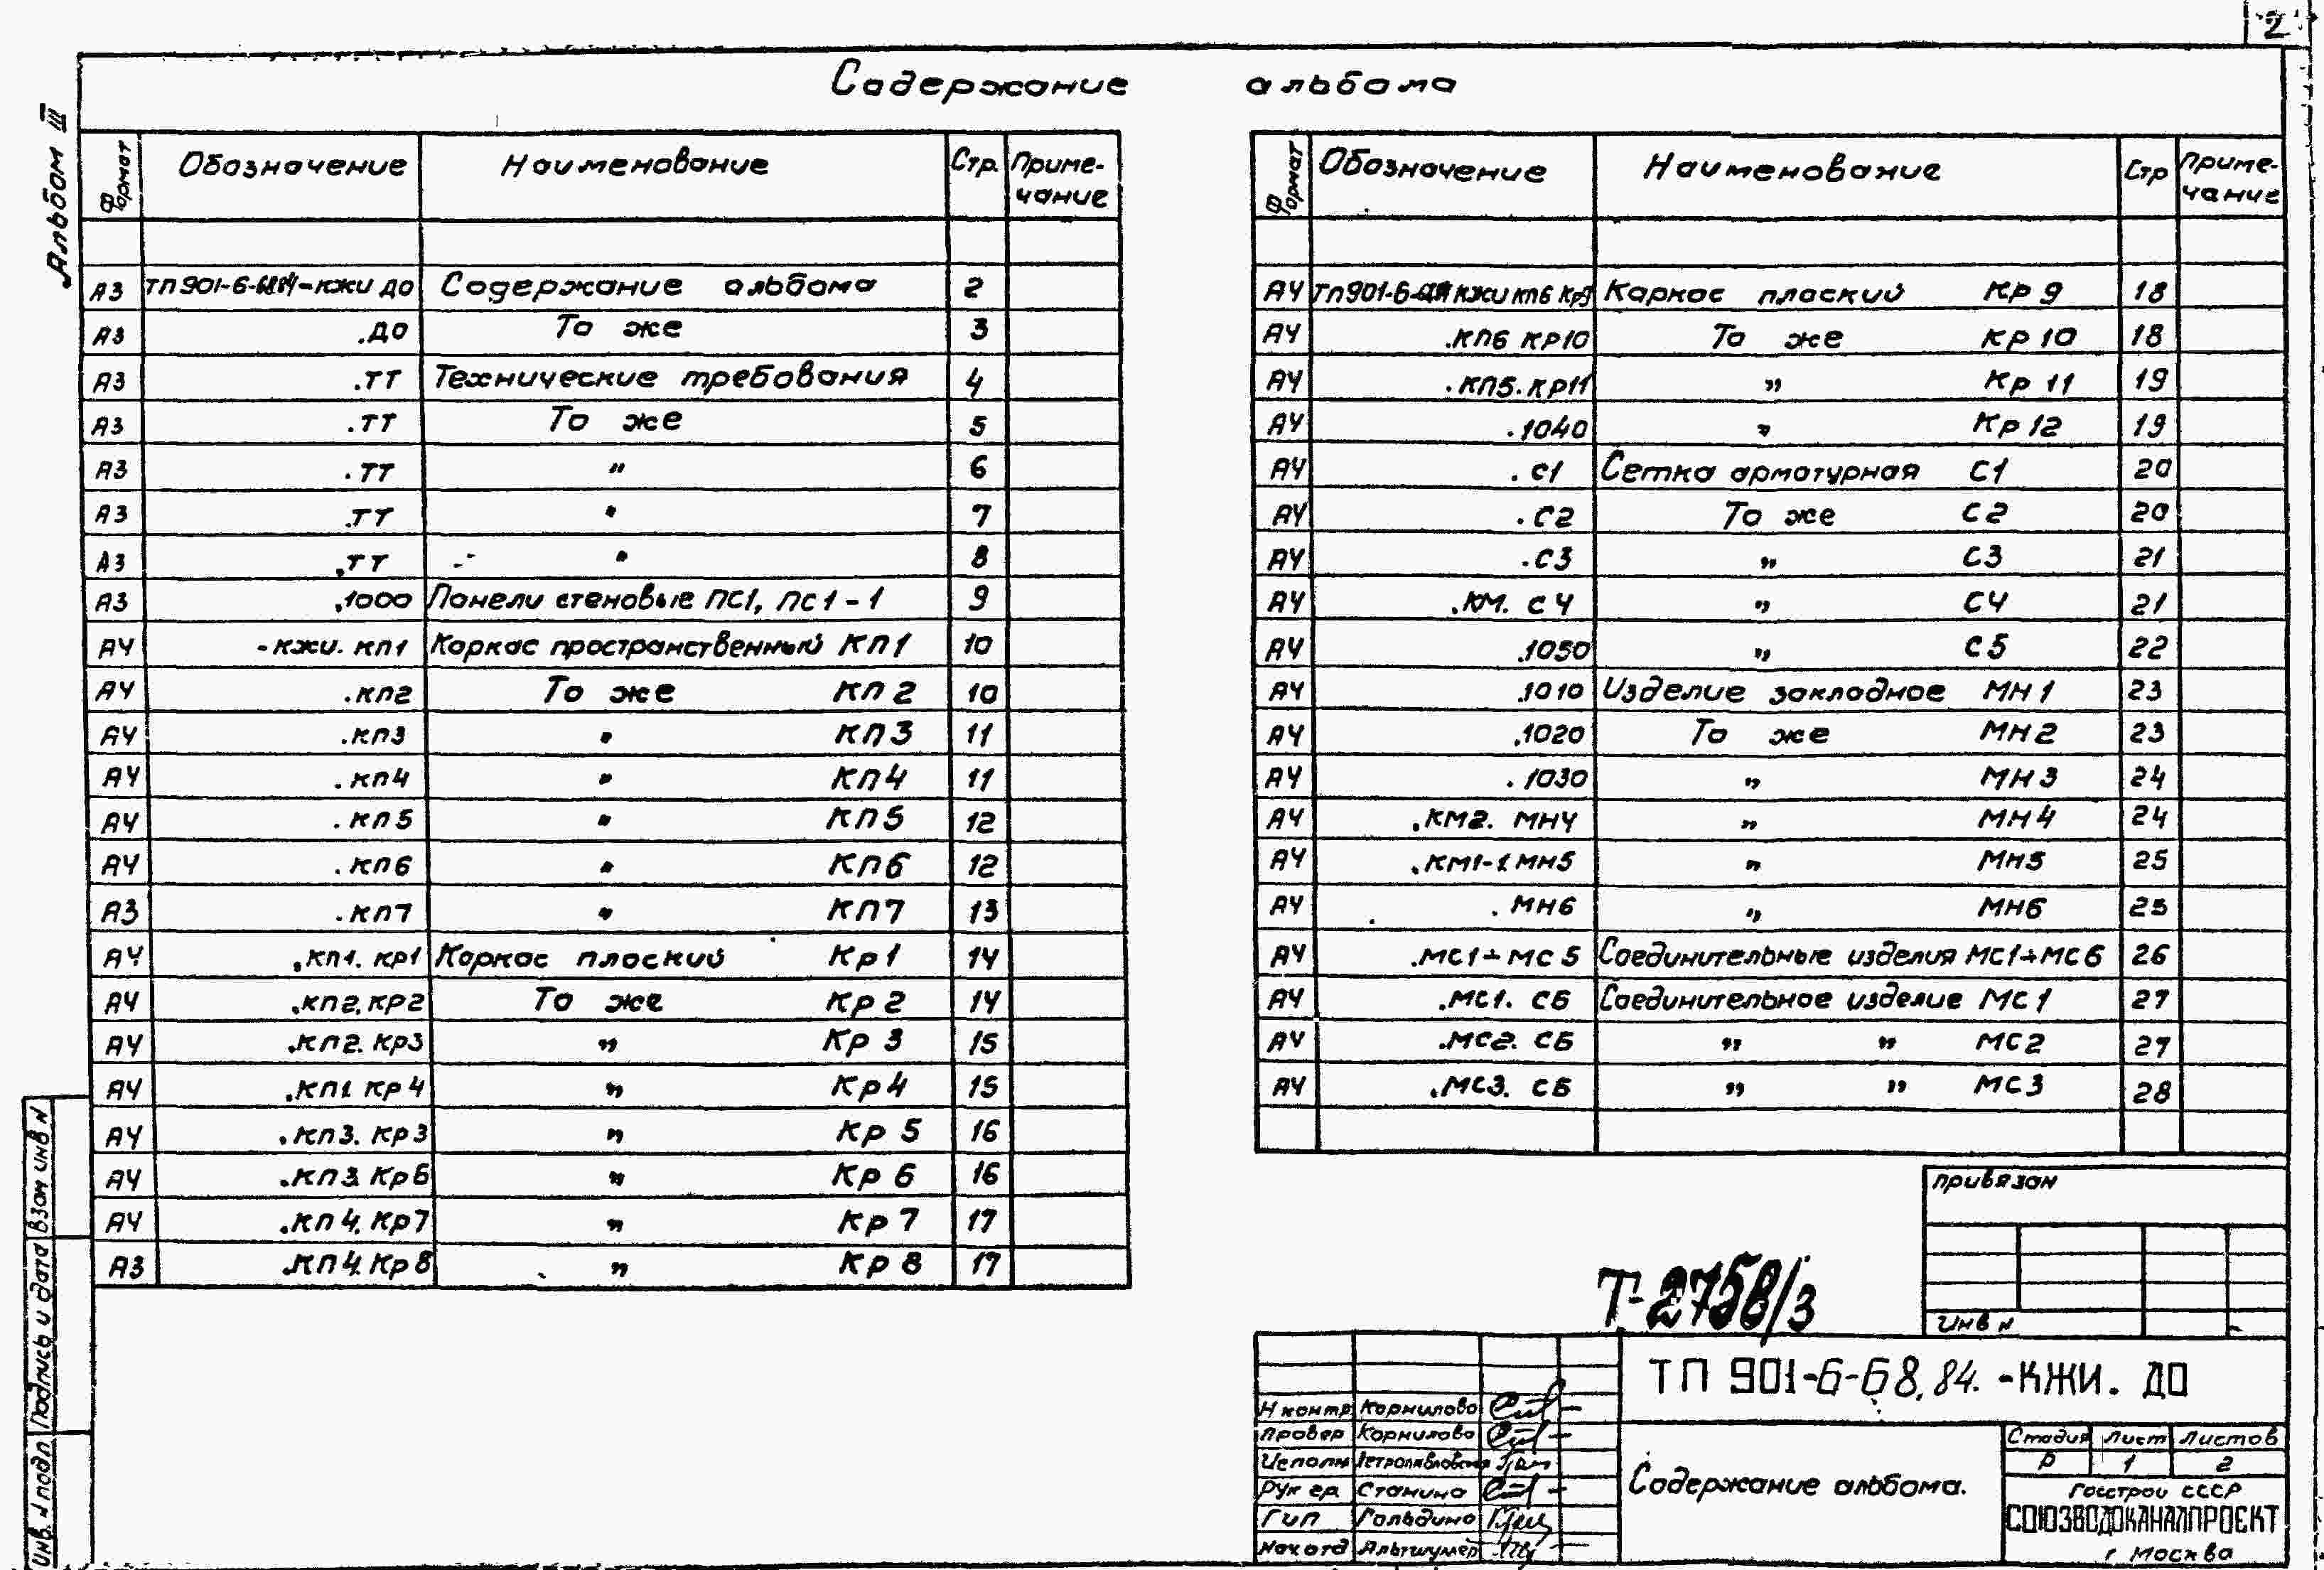 2
Содержание альбома
Альбом III
Формат Обозначение Наименование Стр. Приме-чание
А3 ТП901-6-68.84-КЖИ ДО Содержание альбома 2
А3 .ДО То же 3
А3 .ТТ Технические требования 4
А3 .ТТ То же 5
А3 .ТТ " 6
А3 .ТТ " 7
А3 .ТТ " 8
А3 .1000 Панели стеновые ПС1, ПС1-1 9
А4 -КЖИ. КП1 Каркас пространственный КП1 10
А4 .КП2 То же КП2 10
А4 .КП3 " КП3 11
А4 .КП4 " КП4 11
А4 .КП5 " КП5 12
А4 .КП6 " КП6 12
А3 .КП7 " КП7 13
А4 .КП1. Кр1 Каркас плоский Кр1 14
А4 .КП2. КР2 То же Кр2 14
А4 .КП2. КР3 " Кр3 15
А4 .КП1. Кр4 " Кр4 15
А4 .КП3. Кр3 " Кр5 16
А4 .КП3. Кр6 " Кр6 16
А4 .КП4. Кр7 " Кр7 17
А3 .КП4. Кр8 " Кр8 17
Формат Обозначение Наименование Стр Приме-чание
А4 ТП901-6-68.84 КЖИ КП6 Кр9 Каркас плоский КР9 18
А4 .КП6 КР10 То же КР10 18
А4 .КП5. КР11 " Кр11 19
А4 .1040 " Кр12 19
А4 .С1 Сетка арматурная С1 20
А4 .С2 То же С2 20
А4 .С3 " С3 21
А4 .КМ. С4 " С4 21
А4 .1050 " С5 22
А4 .1010 Изделие закладное МН1 23
А4 .1020 То же МН2 23
А4 .1030 " МН3 24
А4 .КМ2. МН4 " МН4 24
А4 .КМ1-1. МН5 " МН5 25
А4 .МН6 " МН6 25
А4 .МС1÷МС5 Соединительные изделия МС1÷МС6 26
А4 .МС1. СБ Соединительное изделие МС1 27
А4 .МС2. СБ " " МС2 27
А4 .МС3. СБ " " МС3 28
Привязан
Инв N
Т-2758/3
ТП 901-6-68.84.-КЖИ. ДО
Н контр Корнилова
Провер Корнилова
Исполн Петропавловская
Рук гр. Станина
Гип Гольдина
Нач отд Альтшулер
Содержание альбома.
Стадия Лист Листов
Р 1 2
Госстрой СССР
СОЮЗВОДОКАНАЛПРОЕКТ
г Москва
Взам инв N
Подпись и дата
Инв. N подл